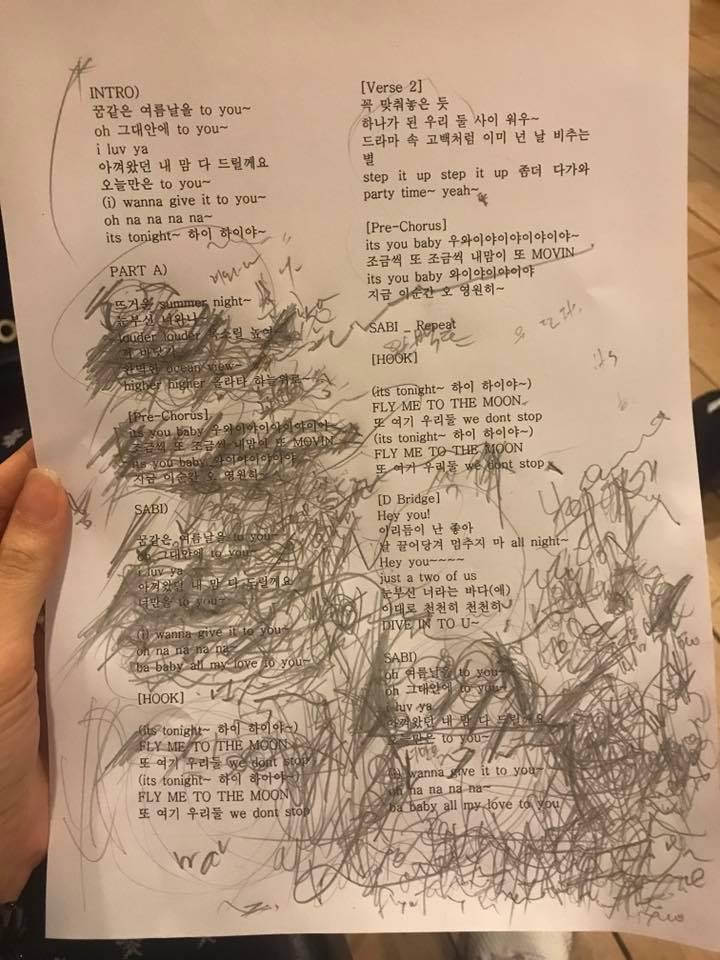 INTRO)
꿈같은 여름날을 to you~
oh 그대안에 to you~
i luv ya
아껴왔던 내 맘 다 드릴께요
오늘만은 to you~
(i) wanna give it to you~
oh na na na na~
its tonight~ 하이 하이야~
PART A)
뜨거운 summer night~
눈부신 너와나~
louder louder 목소릴 높여
저 바닷가
완벽한 ocean view~
higher higher 올라타 하늘위로~
[Pre-Chorus]
its you baby 우와이야이야이야이야
조금씩 또 조금씩 내맘이 또 MOVIN
its you baby 와이야이야이야
지금 이순간 오 영원히~
SABI)
꿈같은 여름날을 to you~
oh 그대안에 to you~
i luv ya
아껴왔던 내 맘 다 드릴께요
너만을 to you~
(i) wanna give it to you~
oh na na na na~
ba baby all my love to you~
[HOOK]
(its tonight~ 하이 하이야~)
FLY ME TO THE MOON
또 여기 우리둘 we dont stop
(its tonight~ 하이 하이야~)
FLY ME TO THE MOON
또 여기 우리둘 we dont stop
[Verse 2]
꼭 맞춰놓은 듯
하나가 된 우리 둘 사이 워우~
드라마 속 고백처럼 이미 넌 날 비추는
별
step it up step it up 좀더 다가와
party time~ yeah~
[Pre-Chorus]
its you baby 우와이야이야이야이야~
조금씩 또 조금씩 내맘이 또 MOVIN
its you baby 와이야이야이야
지금 이순간 오 영원히~
SABI _ Repeat
[HOOK]
(its tonight~ 하이 하이야~)
FLY ME TO THE MOON
또 여기 우리둘 we dont stop
(its tonight~ 하이 하이야~)
FLY ME TO THE MOON
또 여기 우리둘 we dont stop
[D Bridge]
Hey you!
이리듬이 난 좋아
날 끌어당겨 멈추지 마 all night~
Hey you~~~~
just a two of us
눈부신 너라는 바다(에)
이대로 천천히 천천히
DIVE IN TO U~
SABI)
oh 여름날을 to you~
oh 그대안에 to you~
i luv ya
아껴왔던 내 맘 다 드릴께요
오늘만은 to you~
(i) wanna give it to you~
oh na na na na~
ba baby all my love to you